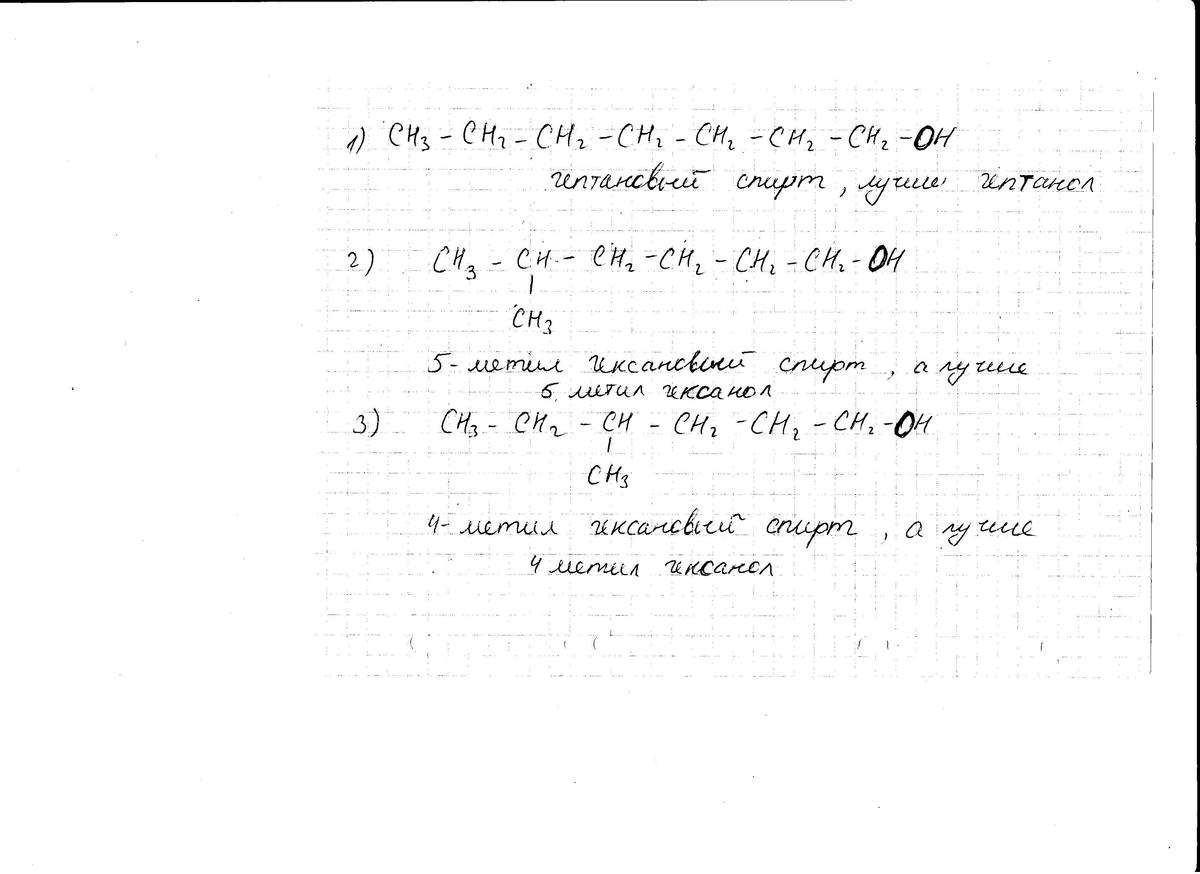 1) CH₃ – CH₂ – CH₂ – CH₂ – CH₂ – CH₂ – CH₂ – OH
гептановый спирт, лучше гептанол
2) CH₃ – CH – CH₂ – CH₂ – CH₂ – CH₂ – OH
|
CH₃
5-метил гексановый спирт, а лучше
5. метил гексанол
3) CH₃ – CH₂ – CH – CH₂ – CH₂ – CH₂ – OH
|
CH₃
4-метил гексановый спирт, а лучше
4 метил гексанол